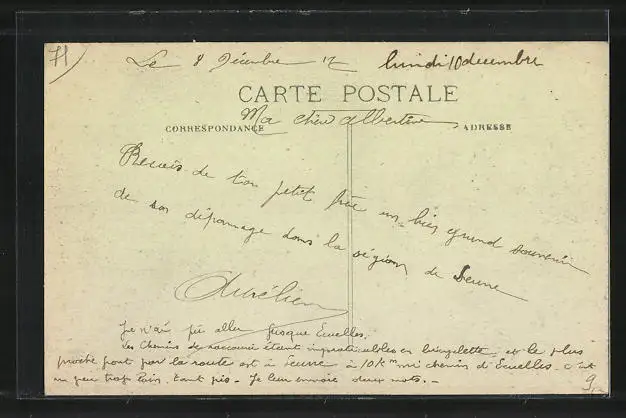 71
Le 8 Décembre 17 lundi 10 decembre
CARTE POSTALE
Ma chère Albertine
CORRESPONDANCE ADRESSE
Recois de ton petit frère un bien grand souvenir
de son dépannage dans la région de Seurre
Aurélien
Je n'ai pu aller jusque Ecuelles.
Les chemins de raccourci étant impraticables en bicyclette, et le plus
proche pont par la route est à Seurre à 10 km mi chemin d'Ecuelles. c'est
un peu trop loin. tant pis. Je leur envoie deux mots. -